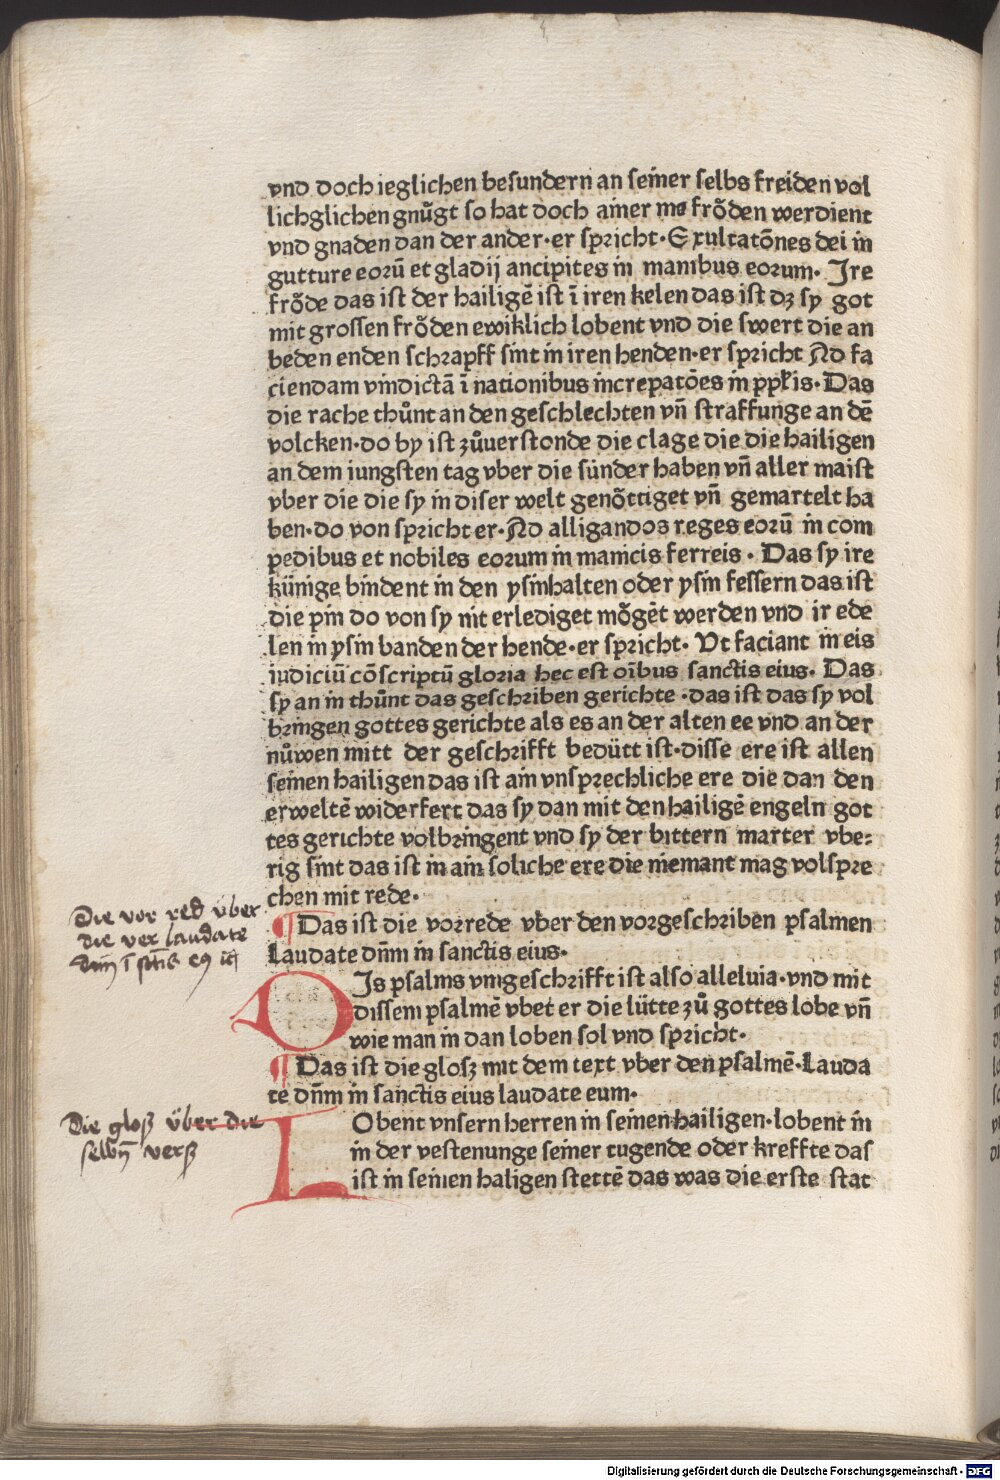 vnd doch ieglichen besundern an seiner selbs freiden vol
lichglichen gnuͤgt so hat doch ainer me froͤden werdient
vnd gnaden dan der ander· er spricht· Exultatōnes dei in
gutture eorū et gladij ancipites in manibus eorum· Ire
froͤde das ist der hailigē ist ī iren kelen das ist dz sy got
mit grossen froͤden ewiklich lobent vnd die swert die an
beden enden schrapff sint in iren henden· er spricht Ad fa
ciendam vindictā ī nationibus increpatōes in ppl̄is· Das
die rache thuͦnt an den geschlechten vn̄ straffunge an dē
volcken· do by ist zuͦuerstonde die clage die die hailigen
an dem iungsten tag vber die sünder haben vn̄ aller maist
vber die die sy in diser welt genoͤttiget vn̄ gemartelt ha
ben· do von spricht er· Ad alligandos reges eorū in com
pedibus et nobiles eorum in manicis ferreis · Das sy ire
künige bindent in den ysinhalten oder ysin fessern das ist
die pin do von sy nit erlediget moͤgēt werden vnd ir ede
len in ysin banden der hende· er spricht· Vt faciant in eis
iudiciū cōscriptū gloria hec est oībus sanctis eius· Das
sy an in thuͤnt das geschriben gerichte · das ist das sy vol
bringen gottes gerichte als es an der alten ee vnd an der
nuͤwen mitt der geschrifft bedütt ist· disse ere ist allen
seinen hailigen das ist ain vnsprechliche ere die dan den
erweltē widerfert das sy dan mit den hailigē engeln got
tes gerichte volbringent vnd sy der bittern marter vbe⸗
rig sint das ist in ain soliche ere die niemant mag volspre
chen mit rede·
Die vor red über
die ver laudate
¶ Das ist die vorrede vber den vorgeschriben psalmen
Laudate dn̄m in sanctis eius·
DIs psalms vmgeschrifft ist also alleluia· vnd mit
dissem psalmē vbet er die lütte zuͦ gottes lobe vn̄
wie man in dan loben sol vnd spricht·
¶ Das ist die glosz mit dem text vber den psalmē· Lauda
te dn̄m in sanctis eius laudate eum·
Die gloß über die
selbn̄ verß
LObent vnsern herren in seinen hailigen· lobent in
in der vestenunge seiner tugende oder kreffte das
ist in seinen haligen stettē das was die erste stat
Digitalisierung gefördert durch die Deutsche Forschungsgemeinschaft - DFG